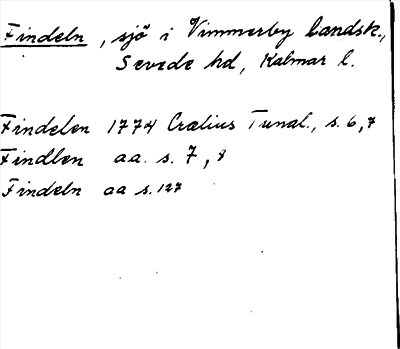 Findeln, sjö i Vimmerby landsk.,
Sevede hd, Kalmar l.
Findelen 1774 Cralius Tunal., s. 6, 7
Findlen aa. s. 7, 8
Findeln aa s. 127